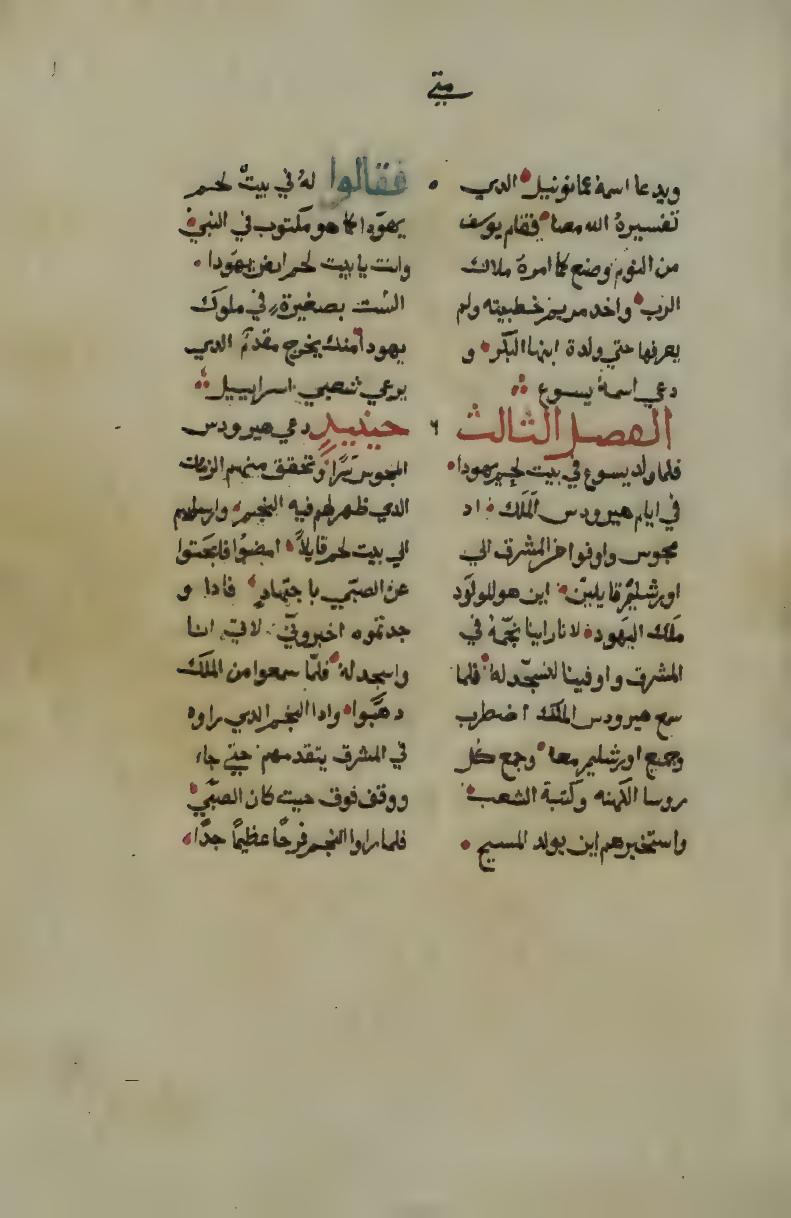 متي
ويدعا اسمه عمانونيل الدي
تفسيرهُ الله معنا فقام يوسف
من النوم وصنع كما امرهُ ملاك
الرب واخد مريم خطيبته ولم
يعرفها حتي ولدة ابنها البكر و
دعي اسمهُ يسوع
الفصل الثالث ٦
فلما ولد يسوع في بيت لحم يهودا
في ايام هيرودس الملك اد
مجوس وافوا من المشرق الي
اورشليم قايلين اين هو المولود
ملك اليهود لاننا راينا نجمهُ في
المشرق ووافينا لنسجد له فلما
سمع هيرودس الملك اضطرب
وجميع اورشليم معه وجمع كل
روسا الكهنه وكتبة الشعب
واستخبرهم اين يولد المسيح
فقالوا لهُ في بيت لحم
يهودا كما هو مكتوب في النبي
وانت يا بيت لحم ارض يهودا
الست بصغيرةٍ في ملوك
يهودا منك يخرج مقدم الدي
يرعي شعبي اسراييل
حينيدٍ دعي هيرودس
المجوس سرًا وتحقق منهم الزمان
الدي ظهر لهم فيه النجم وارسلهم
الي بيت لحم قايلاً امضوا فابحتوا
عن الصبي باجتهادٍ فادا و
جدتموه اخبروني لاتي انا
واسجد لهُ فلمّا سمعوا من الملك
دهبوا وادا النجم الدي راوه
في المشرق يتقدمهم حتي جاء
ووقف فوق حيت كان الصبي
فلما راوا النجم فرحًا عظيمًا جدًا